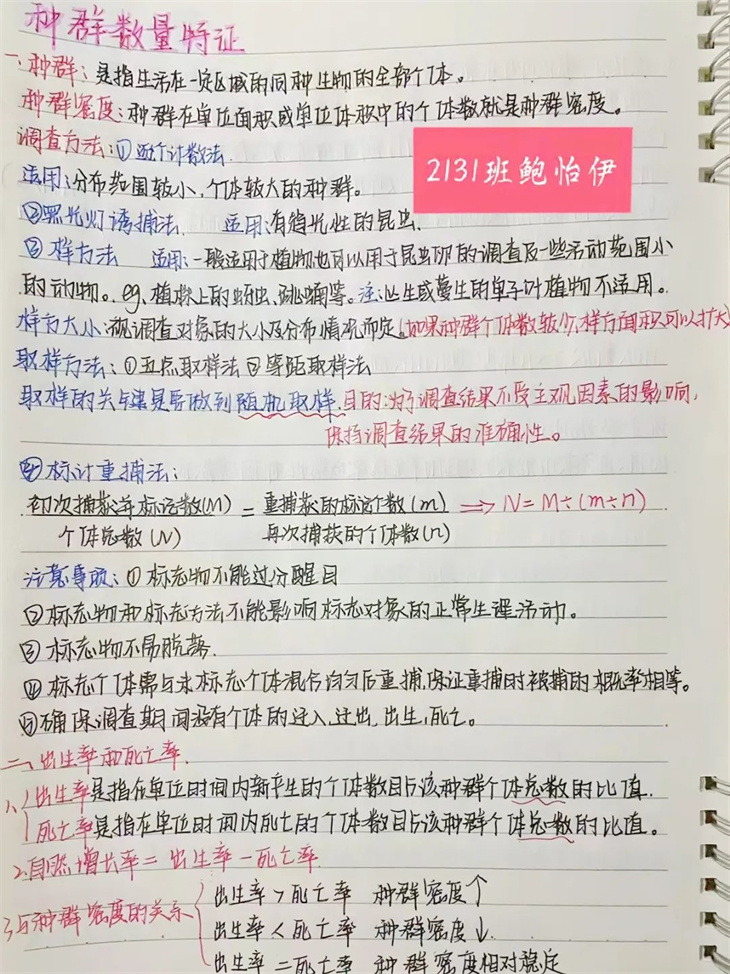 种群数量特征
一、种群：是指生活在一定区域的同种生物的全部个体。
种群密度：种群在单位面积或单位体积中的个体数就是种群密度。
调查方法：①逐个计数法.
2131班鲍怡伊
适用：分布范围较小，个体较大的种群。
②黑光灯诱捕法. 适用：有趋光性的昆虫.
③样方法 适用：一般适用于植物也可以用于昆虫卵的调查及一些活动范围小
的动物。eg、植株上的蚜虫、跳蝻等。注：丛生或蔓生的单子叶植物不适用。
样方大小：视调查对象的大小及分布情况而定.(如果种群个体数较少，样方面积可以扩大)
取样方法：①五点取样法②等距取样法
取样的关键是要做到随机取样.目的：为了调查结果不受主观因素的影响，
保持调查结果的准确性。
④标计重捕法：
初次捕获并标记数(M) = 重捕获的标记个数(m) ⟹ N=M÷(m÷n)
个体总数(N) 再次捕获的个体数(n)
注意事项：①标志物不能过分醒目
②标志物和标志方法不能影响标志对象的正常生理活动。
③标志物不易脱落.
④标志个体需与未标志个体混合均匀后重捕，保证重捕时被捕的概率相等。
⑤确保调查期间没有个体的迁入，迁出，出生，死亡。
二、出生率和死亡率.
1、出生率是指在单位时间内新产生的个体数目与该种群个体总数的比值.
死亡率是指在单位时间内死亡的个体数目与该种群个体总数的比值。
2.自然增长率=出生率-死亡率.
3、与种群密度的关系
出生率>死亡率 种群密度↑
出生率<死亡率 种群密度↓.
出生率=死亡率 种群密度相对稳定